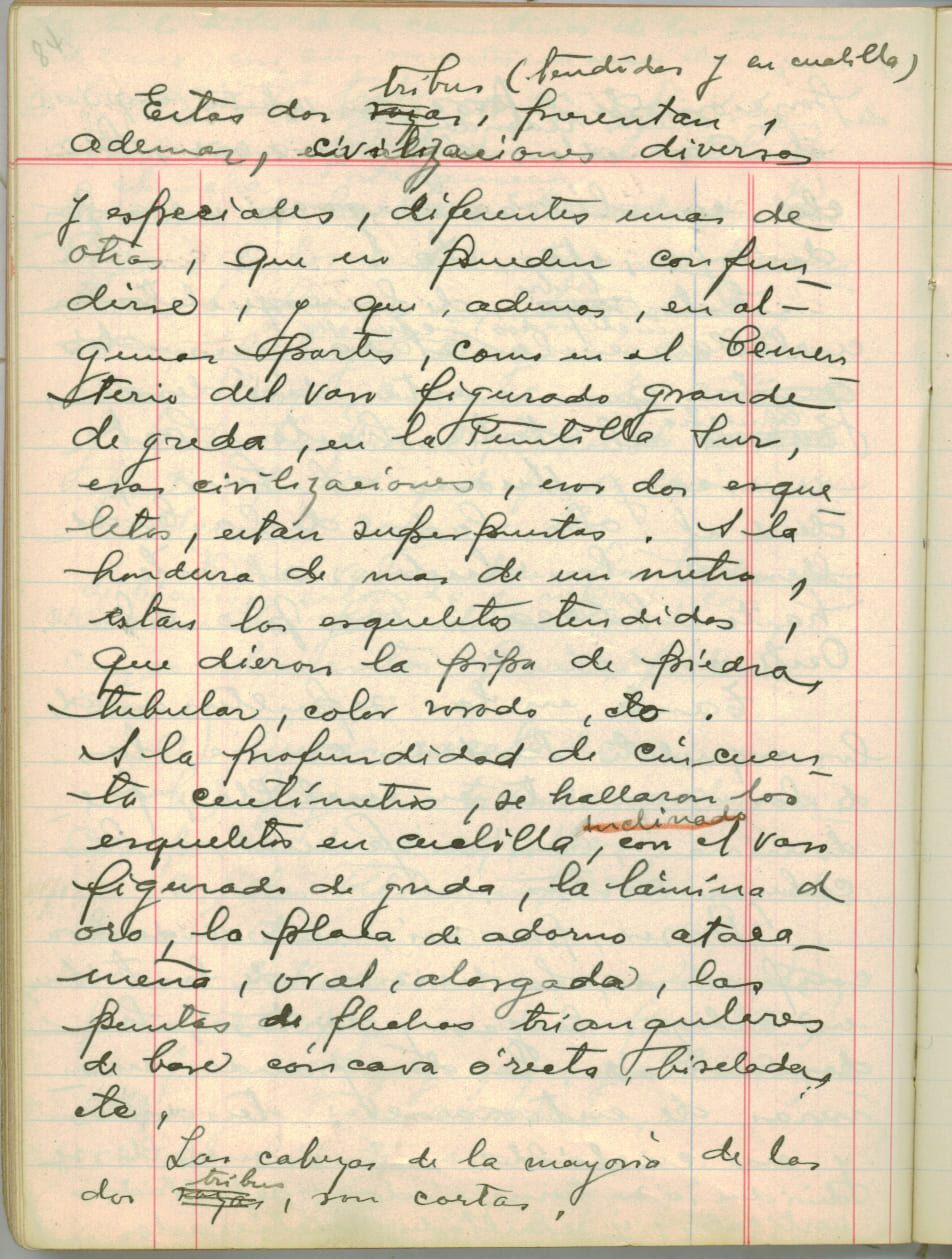 84
tribus (tendidas y en cuclilla)
Estas dos razas, presentan,
ademas, civilizaciones diversas
y especiales, diferentes unas de
otras, que no pueden confun
dirse, y que, ademas, en al-
gunas partes, como en el Cemen
terio del vaso figurado grande
de greda, en la Puntilla Sur,
esas civilizaciones, esos dos esque
letos, estan superpuestas. A la
hondura de mas de un metro,
estan los esqueletos tendidos,
que dieron la pipa de piedra,
tubular, color rosado, etc.
A la profundidad de cincuen
ta centímetros, se hallaron los
inclinado
esqueletos en cuclilla, con el vaso
figurado de greda, la lámina de
oro, la placa de adorno ataca-
meña, oval, alargada, las
puntas de flechas triangulares
de base cóncava ó recta, biseladas,
etc,
Las cabezas de la mayoria de las
tribus
dos razas, son cortas,